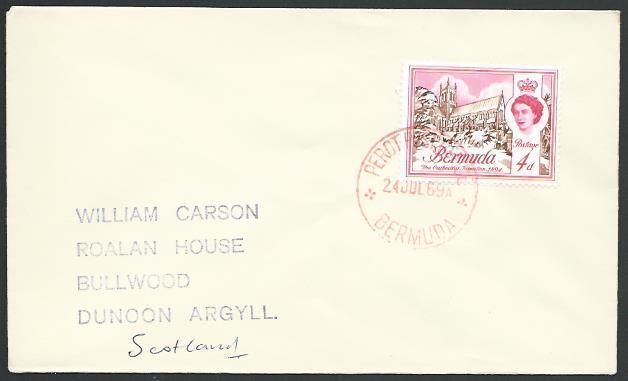 Postage
Bermuda
4d
The Cathedral, Hamilton, 1894
PEROT
24 JUL 69 A
BERMUDA
WILLIAM CARSON
ROALAN HOUSE
BULLWOOD
DUNOON ARGYLL.
Scotland